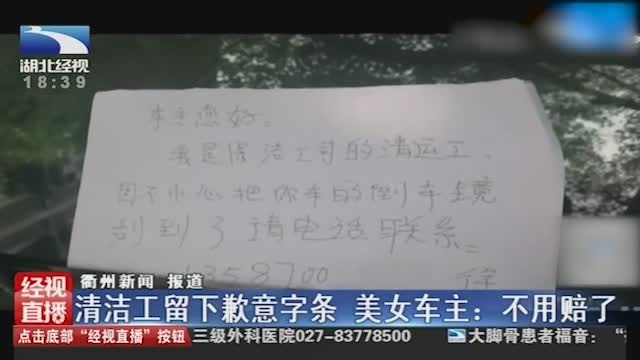 湖北经视
18:39
车主您好:
我是保洁公司的清运工,
因不小心把你车的倒车镜
刮到了请电话联系。
经视直播
衢州新闻 报道
清洁工留下歉意字条 美女车主：不用赔了
点击底部“经视直播”按钮 三级外科医院027-83778500 大脚骨患者福音：“